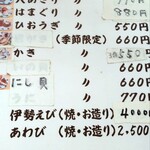 はまぐり 〃 880円
ひおうぎ 〃 550円
(季節限定) 660円
かき 〃 550円
〃 660円
にし貝 〃 660円
うに 〃 770円
伊勢えび(焼・お造り) 4000円
あわび(焼・お造り) 2,500